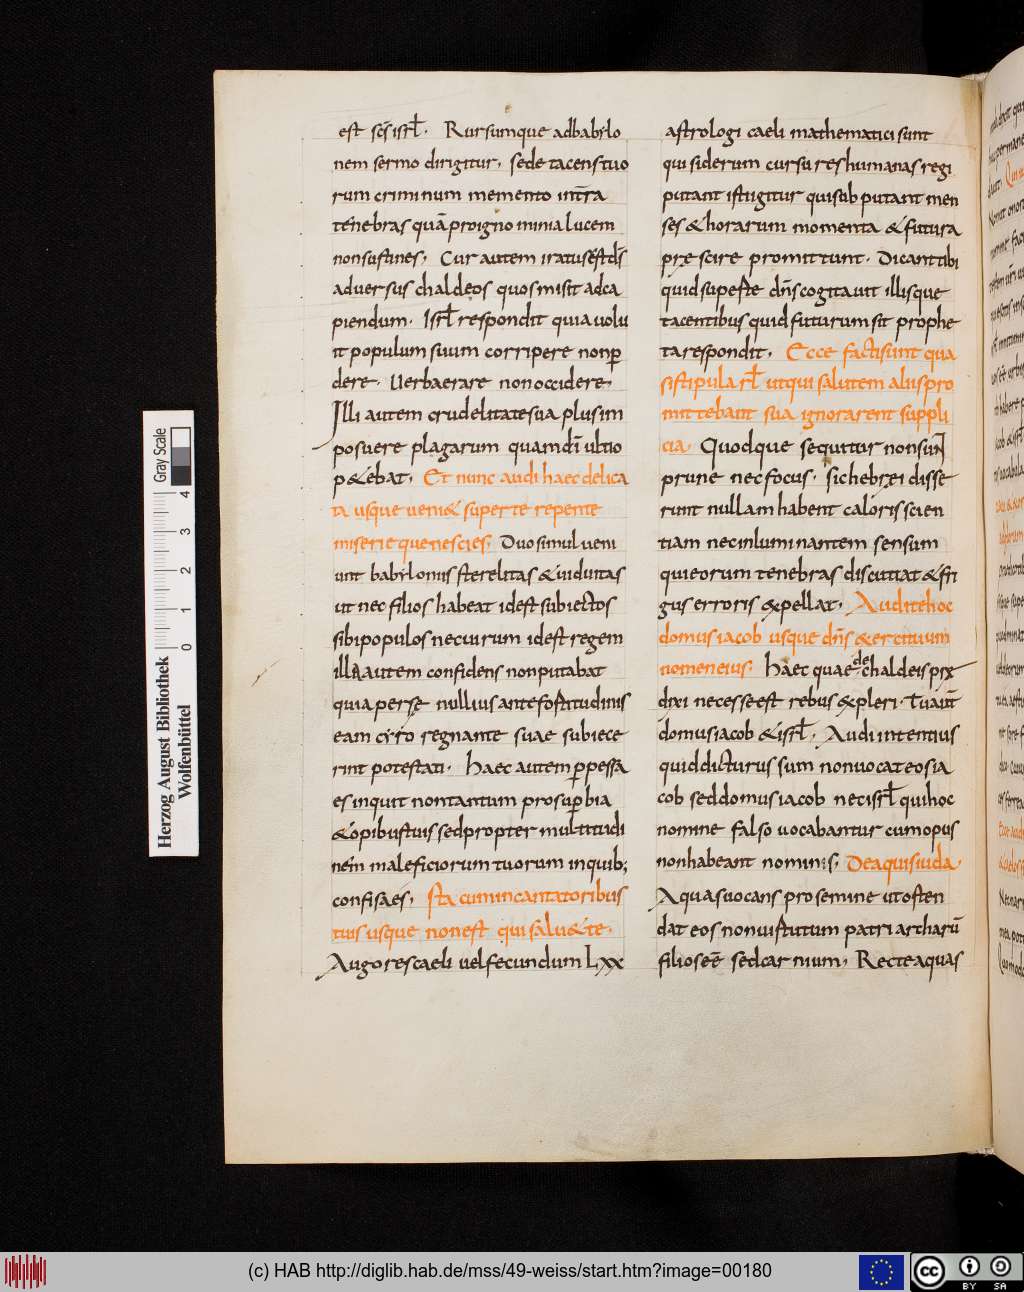 est scs isrl. Rursumque adbabylo
nem sermo dirigitur, sede tacens tuo
rum criminum memento intra
tenebras quā proigno minia lucem
nonsustines, Cur autem iratus est ds
adversus chaldeos quos misit adca
piendum. Isrl respondit quia volu
it populum suum corripere non p
dere. Uerbaerare non occidere,
Illi autem crudelitate sua plus im
posuere plagarum quam dī ultio
p&ebat, Et nunc audi haec delica
ta usque ueni& super te repente
miserie que nescies. Duo simul ueni
unt babylonius sterelitas & uiduitas
ut nec filios habeat id est subiectos
sibi populos nec uirum id est regem
illa autem confidens non putabat
quia perse nullius ante fortitudinis
eam cyro regnante suae subiece
rint potestati. Haec autem p pessa
es inquit non tantum pro superbia
& opibus tuis sed propter multitudi
nem maleficiorum tuorum in quib;
confisa es, sta cum incantatoribus
tuis usque non est qui salu& te.
Augores caeli uel secundum Lxx
astrologi caeli mathematici sunt
qui siderum cursu res humanas regi
putant isti igitur qui sub putant men
ses & horarum momenta & futura
prescire promittunt. Dicant tibi
quid super te dns cogitauit illisque
tacentibus quid futurum sit prophe
ta respondit. Ecce facti sunt qua
si stipula rl ut qui salutem aliis pro
mittebant sua ignorarent suppli
cia. Quodque sequitur non sunt
prune nec focus. sic hebrei disse
runt nullam habent caloris scien
tiam nec inluminantem sensum
qui eorum tenebras discutiat & fri
gus erroris expellat. Audite hoc
domus iacob usque dns exercituum
nomen eius. Haec quae de chaldeis pre
dixi necesse est rebus expleri. Tu aut
domus iacob & isrl. Audi intentius
quid dicturus sum non uocat eos ia
cob sed domus iacob nec isrl qui hoc
nomine falso uocabantur cum opus
non habeant nominis, De aquis iuda.
Aquas uocans pro semine ut osten
dat eos non uirtutum patriarcharū
filios eē sed carnium, Recte aquas
Herzog August Bibliothek
Wolfenbüttel
0 1 2 3 4
Gray Scale
(c) HAB http://diglib.hab.de/mss/49-weiss/start.htm?image=00180
cc BY SA